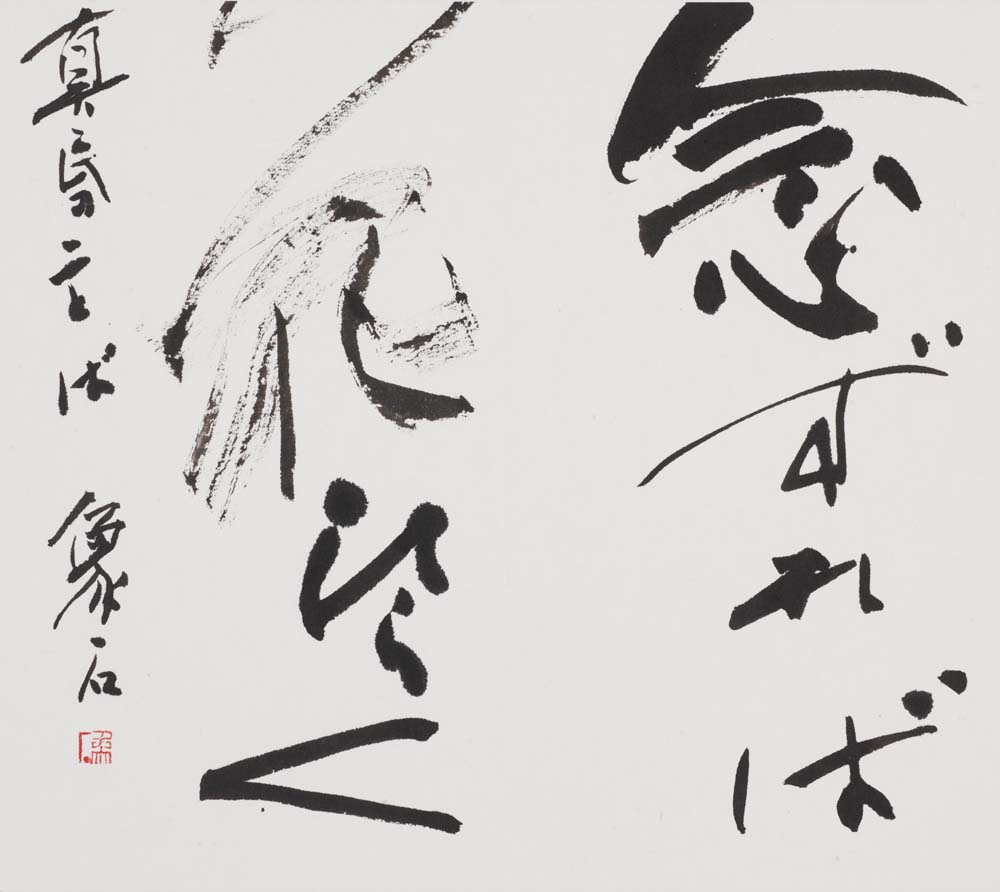 念ずれば
花ひらく
真民のことば 石